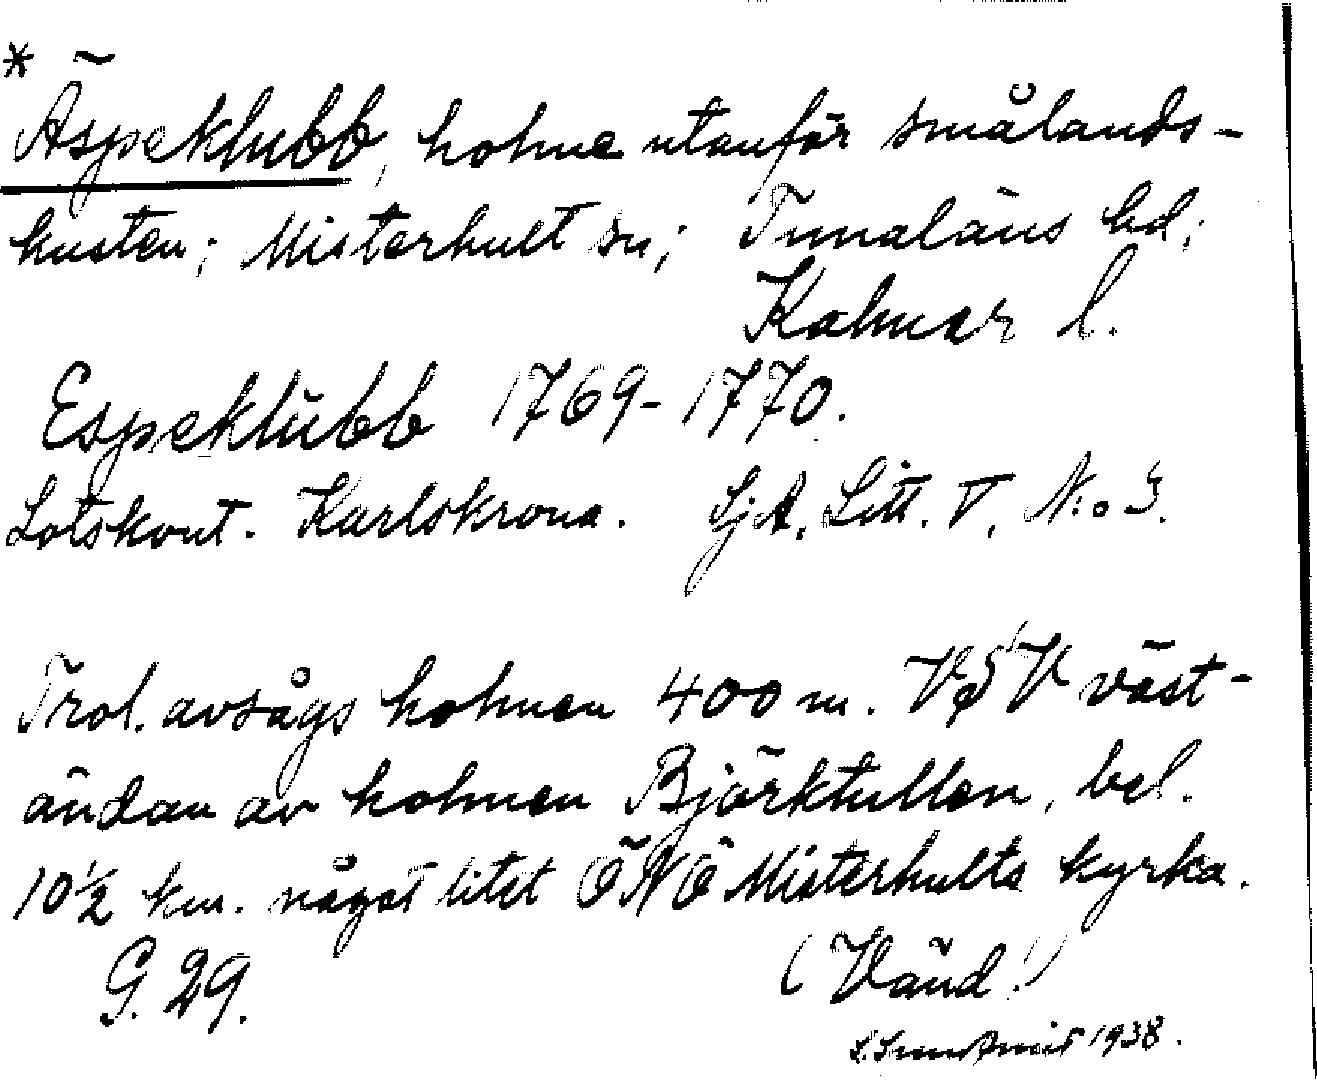 *
Äspeklubb, holme utanför smålands-
kusten; Misterhult sn; Tunaläns hd;
Kalmar l.
Espeklübb 1769-1770.
Lotskont. Karlskrona. SjA. Litt. V. N:o 3.
Trol. avsågs holmen 400 m. VSV väst-
ändan av holmen Björktullen, bel.
10½ km. något litet ÖNÖ Misterhults kyrka.
G. 29. (Vänd!)
1938.